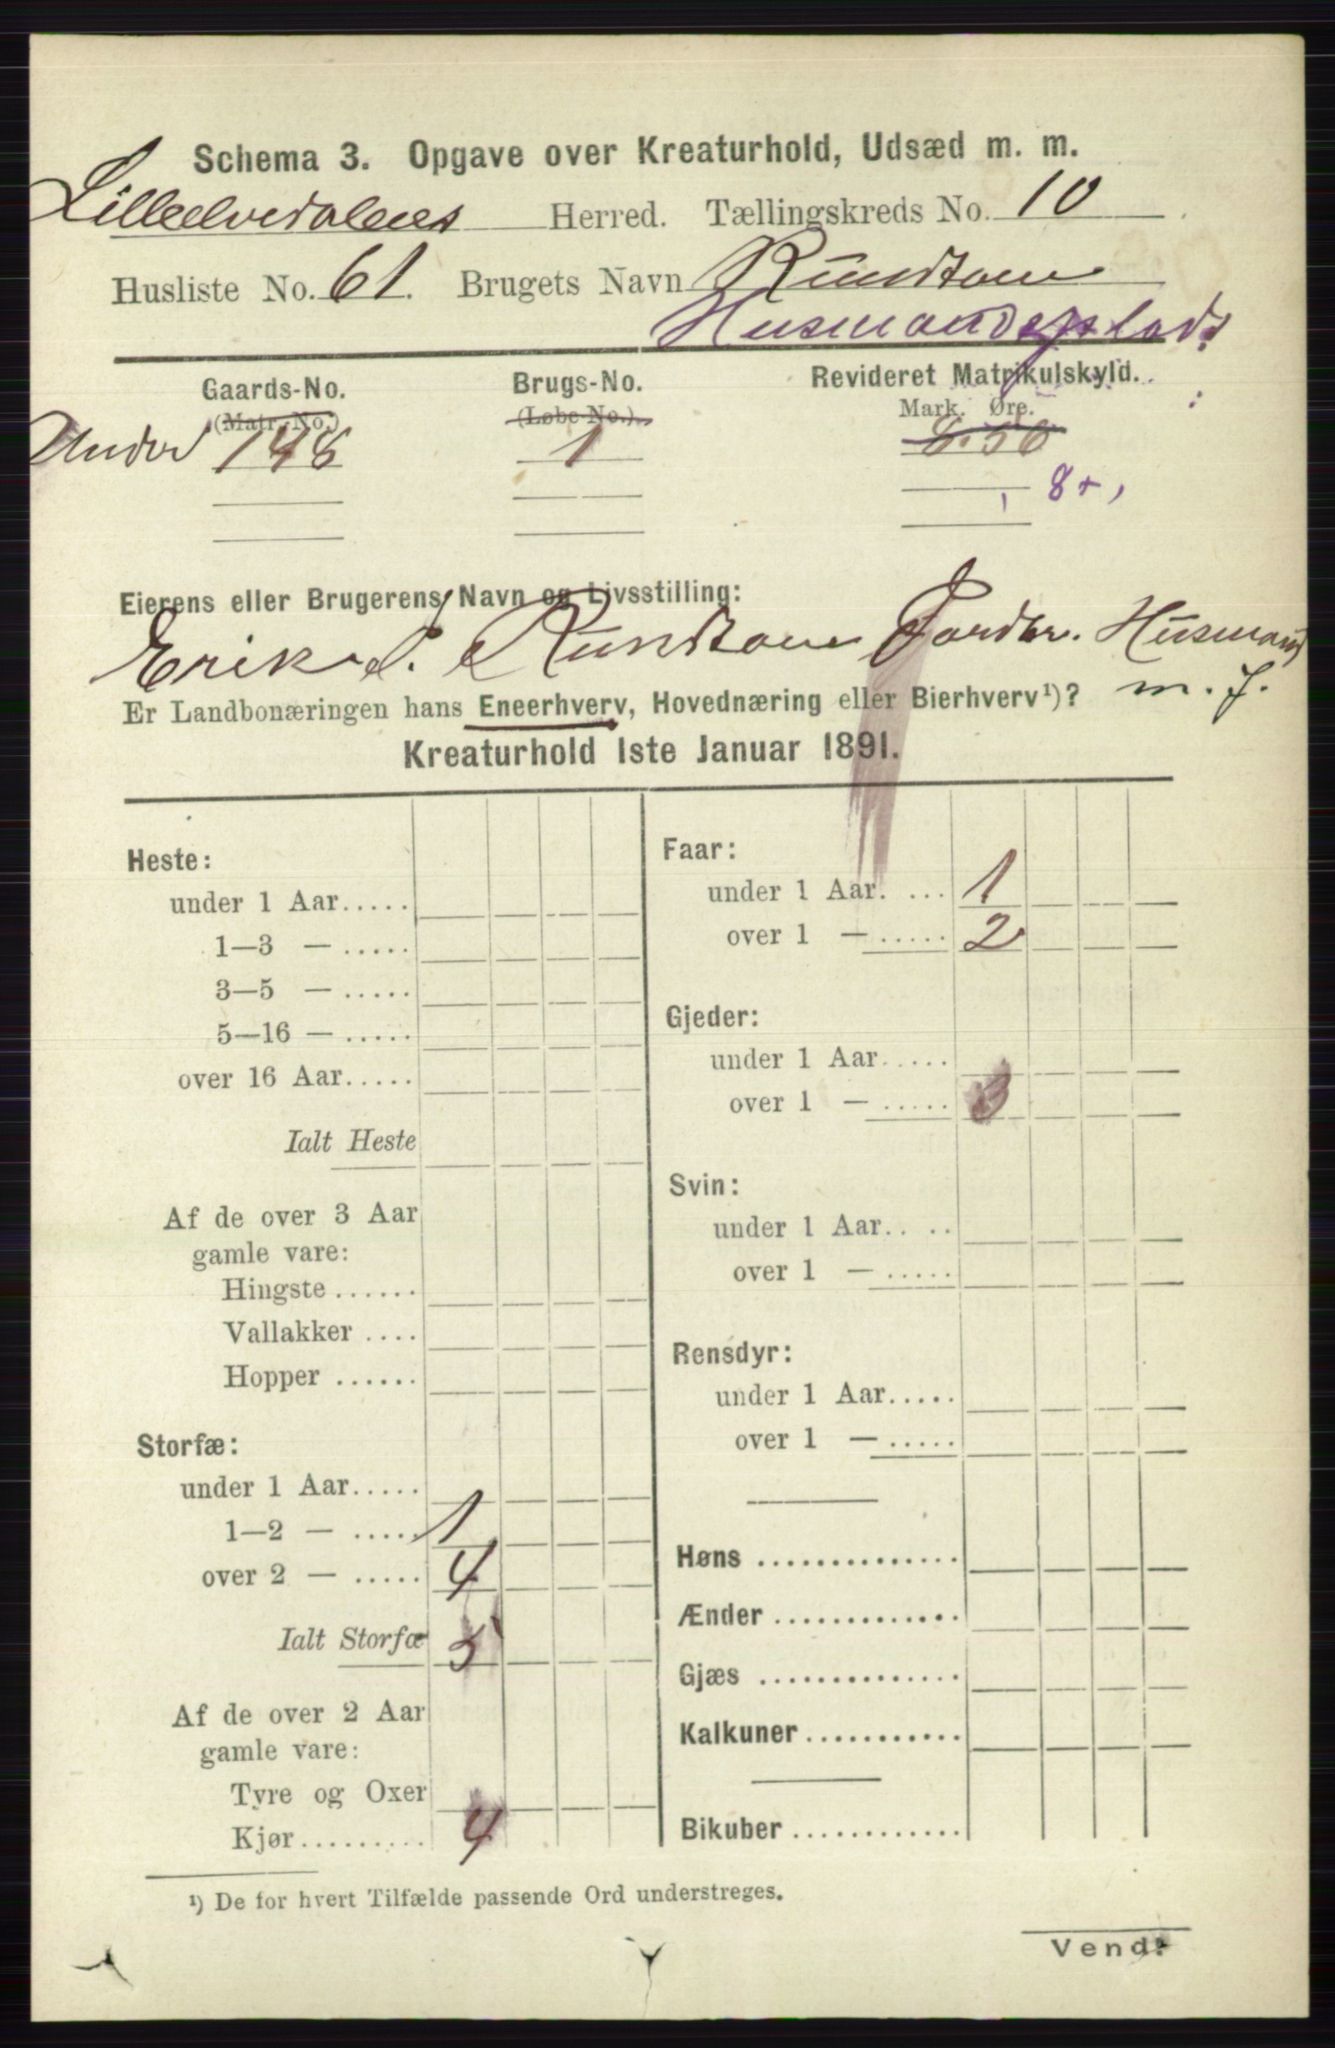 Schema 3. Opgave over Kreaturhold, Udsæd m. m.
Lilleelvedalens Herred. Tællingskreds No. 10
Husliste No. 61. Brugets Navn Rundtom
Husmandsplads
Gaards-No. Brugs-No. Revideret Matrikulskyld.
(Matr.-No.) (Løbe-No.) Mark. Øre.
Under 148 1
8+,
Eierens eller Brugerens Navn og Livsstilling:
Erik Rundtom Jordbr. Husmand
m. J.
Er Landbonæringen hans Eneerhverv, Hovednæring eller Bierhverv¹)?
Kreaturhold 1ste Januar 1891.
Heste:
under 1 Aar.....
1—3 — .....
3—5 — .....
5—16 — .....
over 16 Aar.....
Ialt Heste
Af de over 3 Aar
gamle vare:
Hingste ......
Vallakker ....
Hopper ......
Storfæ:
under 1 Aar.....
1—2 — ..... 1
over 2 — ..... 4
Ialt Storfæ 5
Af de over 2 Aar
gamle vare:
Tyre og Oxer
Kjør......... 4
Faar:
under 1 Aar. ... 1
over 1 — ..... 2
Gjeder:
under 1 Aar.....
over 1 — .....
Svin:
under 1 Aar.. ..
over 1 — .....
Rensdyr:
under 1 Aar.....
over 1 — .....
Høns ..............
Ænder .............
Gjæs ..............
Kalkuner ...........
Bikuber .............
¹) De for hvert Tilfælde passende Ord understreges.
Vend.